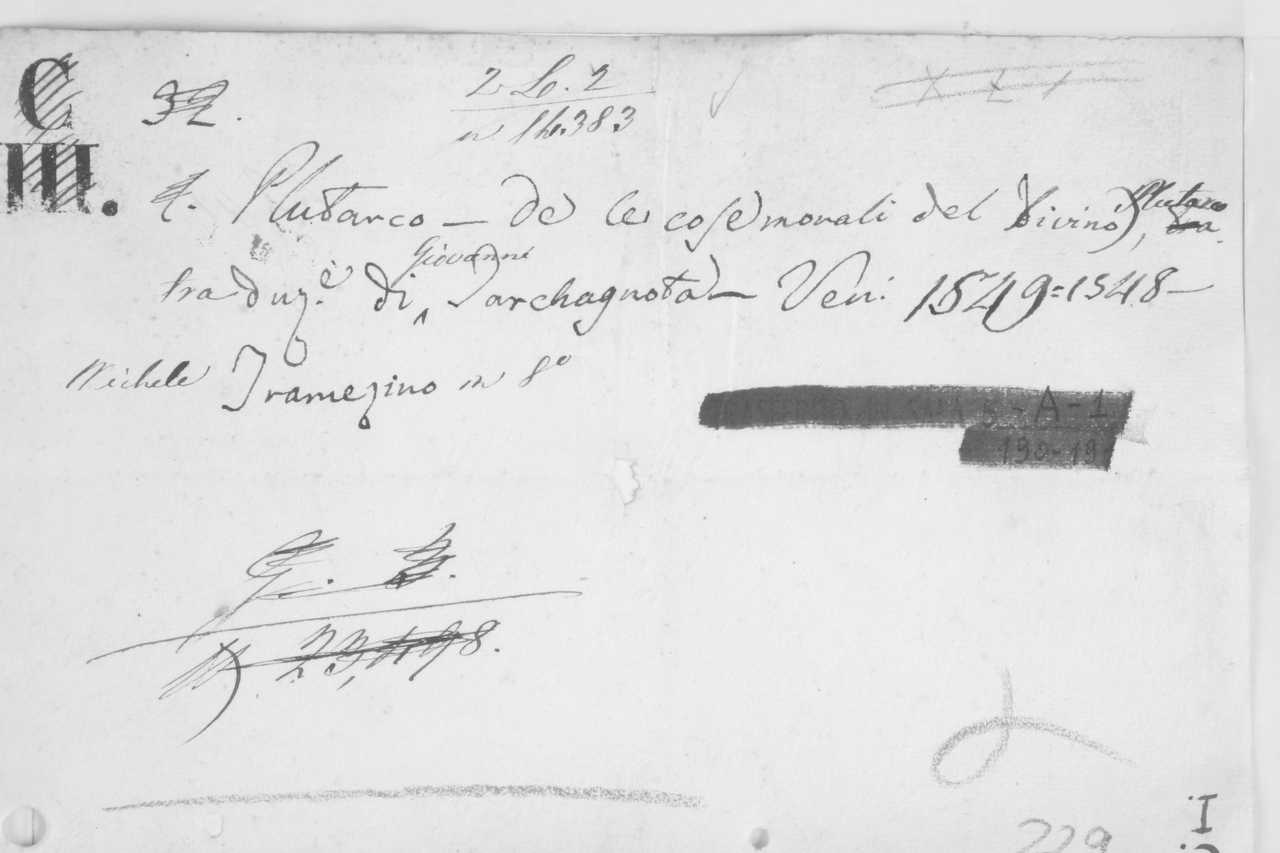 C
III.
32.
2. L. 2
n 14.383
X L 1
t. Plutarco — De le cose morali del Divino, Plutarco
traduz.e di Giovanni Tarchagnota — Ven: 1549=1548 —
Michele Tramezino in 8º
TRASFERITO IN SALA 5-A-1
198-19
23,498.
229
I